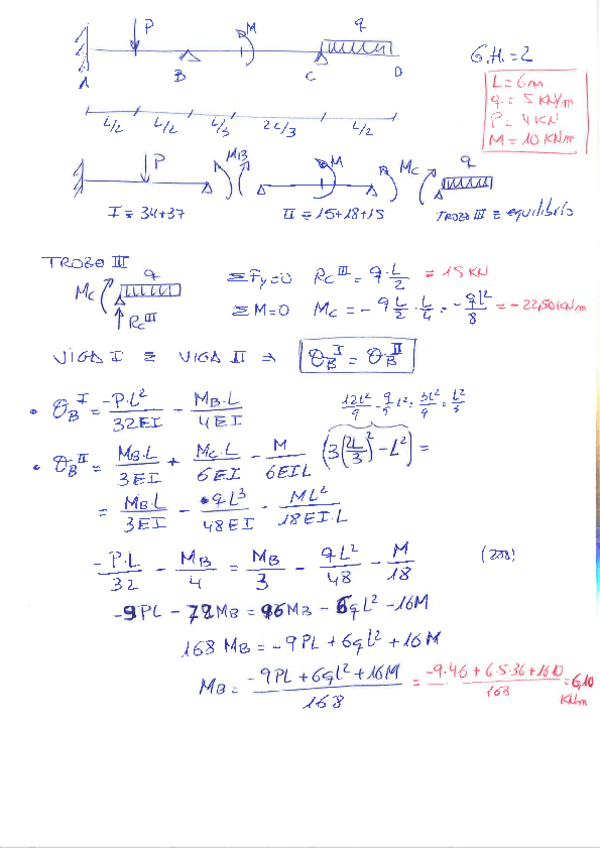 P M q
G.H.=2
A B C D
L=6m
q=5 KN/m
P=4KN
M=10KNm
L/2 L/2 L/3 2L/3 L/2
P MB M MC q
I=34+37 II=15+18+15 TROZO III = equilibrio
TROZO III
q
MC
RC III
ΣFy=0 RC III = q·L/2 = 15 KN
ΣM=0 MC = -qL/2·L/4 = -qL²/8 = -22,50KNm
VIGA I ≡ VIGA II ⇒ θB I = θB II
• θB I = -P·L²/32EI - MB·L/4EI
12L²/9 - 9/9 L² = 3L²/9 = L²/3
• θB II = MB·L/3EI + MC·L/6EI - M/6EIL (3(2L/3)² - L²) =
= MB·L/3EI - qL³/48EI - ML²/18EI·L
-P·L/32 - MB/4 = MB/3 - qL²/48 - M/18
-9PL - 72MB = 96MB - 6qL² - 16M
168 MB = -9PL + 6qL² + 16M
MB = -9PL + 6qL² + 16M/168 = -9·4·6 + 6·5·36 + 16·10/168 = 6,10 KNm